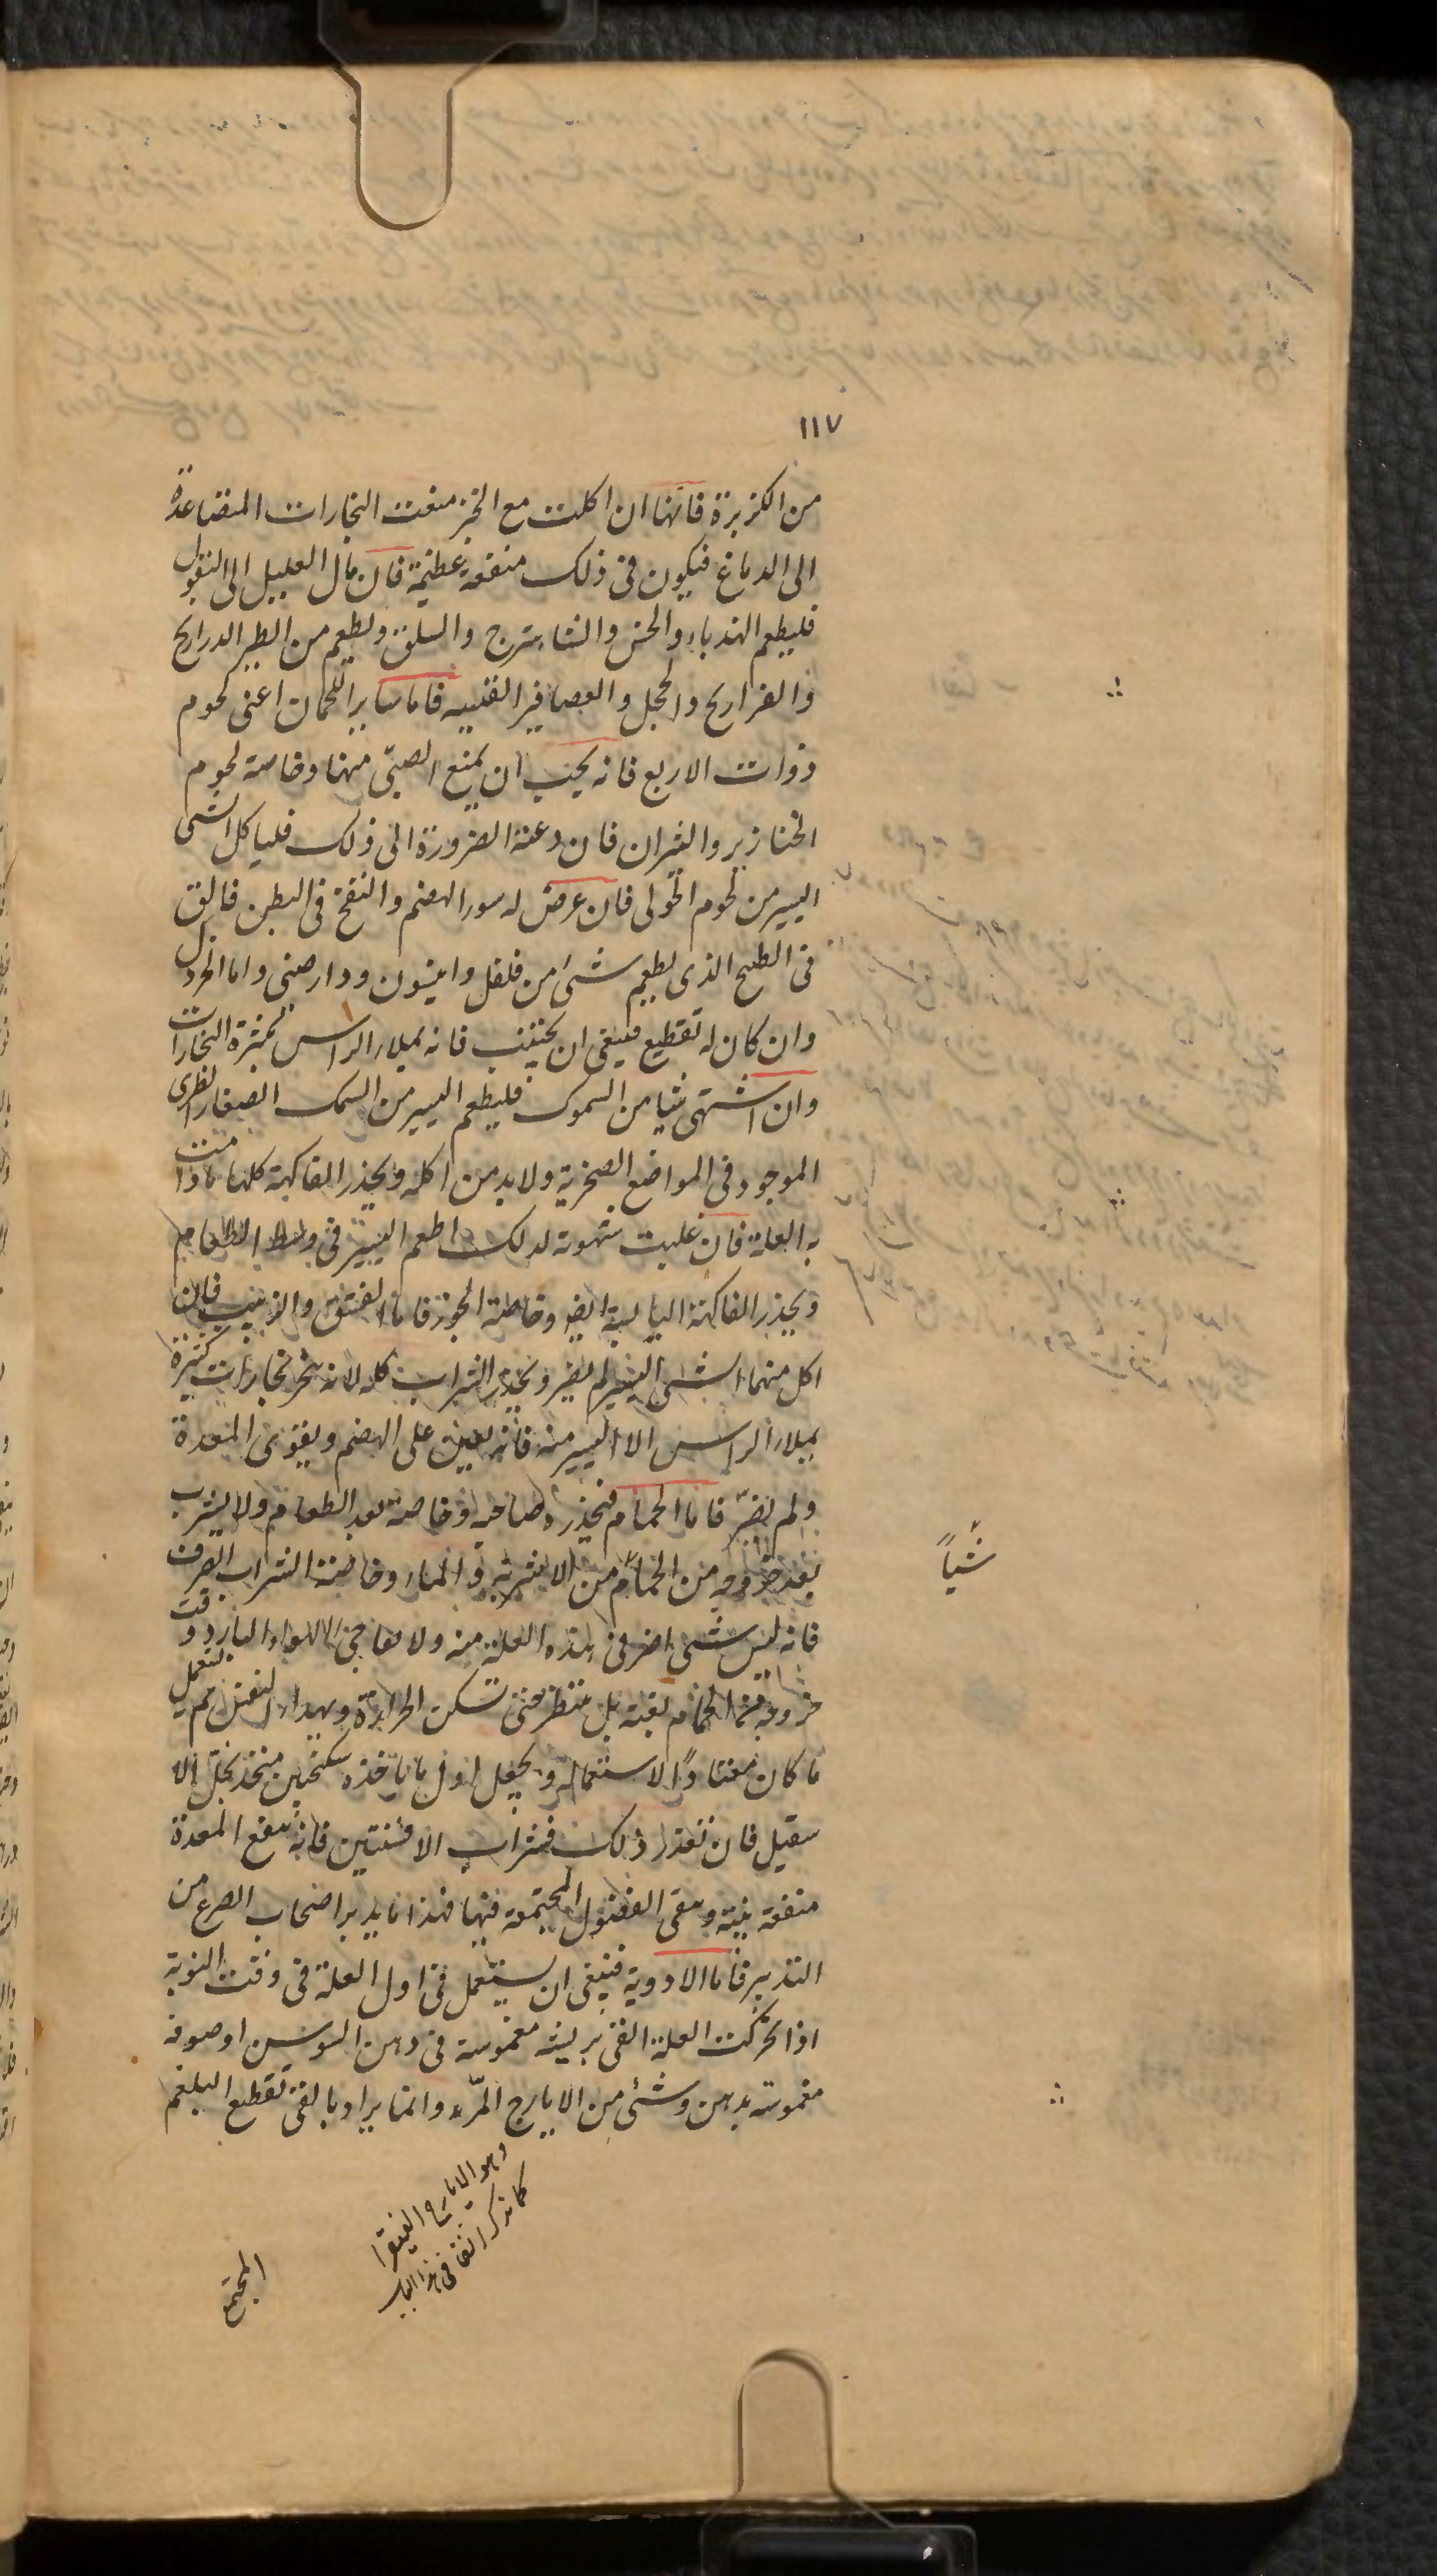 ١١٧
من الكزبرة فانها ان اكلت مع الخبز منعت البخارات المتصاعدة
الى الدماغ فيكون فى ذلك منفعة عظيمة فان مال العليل الى البقول
فليطعم الهندباء والخس والشاهترج والسلق ويطعم من الطير الدراريج
والفراريج والحجل والعصافير القنبيه فاما ساير اللحمان اعنى لحوم
ذوات الاربع فانه يجب ان يمنع الصبىّ منها وخاصة لحوم
الخنازير والثيران فان دعته الضرورة الى ذلك فلياكل الشى
اليسير من لحوم الحولى فان عرض له سور الهضم والنفخ فى البطن فالق
فى الطبيخ الذى يطعم شئ من فلفل وانيسون ودارصينى واما الخردل
وان كان له تقطيع فينبغى ان يجتنب فانه يملا الراس لكثرة البخارات
وان اشتهى شيا من السموك فليطعم اليسير من السمك الصغار الطرى
الموجود فى المواضع الصخرية ولا بد من اكله ويحذر الفاكهة كلها مادامت
به العلة فان غلبت شهوته لذلك اطعم اليسير فى وسط الطعام
ويحذر الفاكهة اليابسة ايضا وخاصة الجوز فاما الفستق والزبيب فان
اكل منهما الشى اليسير لم يضر ويحذر الشراب كله لانه يبخر بخارات كثيرة
يملا الراس الا اليسير منه فانه يعين على الهضم ويقوى المعدة
ولم يضرّ فاما الحمام فيحذره صاحبه وخاصة بعد الطعام ولا يشرب
بعد خروجه من الحمّام من الاشربة والماء وخاصة الشراب الصرف
شَياً
فانه ليس شى اضر فى هذه العلة منه ولا يفاجئ الهواء البارد وقت
خروجه من الحمام بغتة بل ينتظر حتى تسكن الحرارة ويهداء النفس ثم يستعمل
ما كان معتادًا لاستعماله ويجعل اول ما ياخذه سكنجبين متخذ بخل الا
سقيل فان تعذر ذلك فشراب الافسنتين فانه ينفع المعدة
منفعة بينة وينقى الفضول المجتمعة فيها فهذا ما يدبر اصحاب الصرع من
التدبير فاما الادوية فينبغى ان يستعمل فى اول العلة فى وقت النوبة
اذا تحركت العلة القئ بريشة مغموسة فى دهن السوسن او صوفة
مغموسة بدهن وشئ من الايارج المّر وانما يراد بالقئ تقطيع البلغم
وهو الايارج الفيقرا
كما نذكر انفا فى هذا الباب
المجتمع